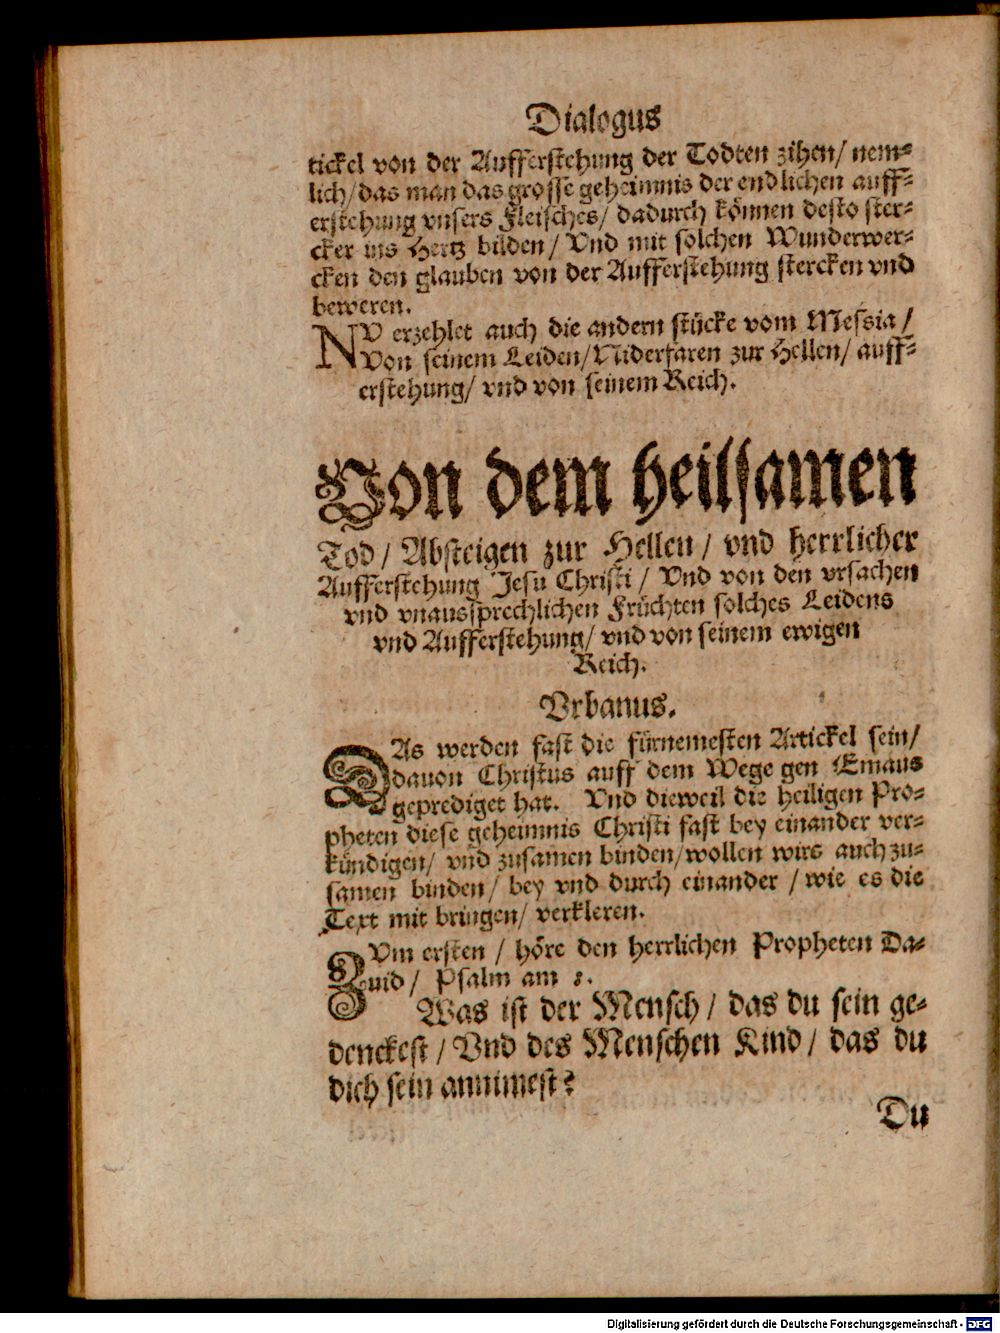 Dialogus
tickel von der Aufferstehung der Todten zihen/ nem⸗
lich/ das man das grosse geheimnis der endlichen auff⸗
erstehung vnsers Fleisches/ dadurch können desto ster⸗
cker ins Hertz bilden/ Vnd mit solchen Wunderwer⸗
cken den glauben von der Aufferstehung stercken vnd
beweren.
NV erzehlet auch die andern stücke vom Messia/
Von seinem Leiden/ Niderfaren zur Hellen/ auff⸗
erstehung/ vnd von seinem Reich.
Von dem heilsamen
Tod/ Absteigen zur Hellen/ vnd herrlicher
Aufferstehung Jesu Christi/ Vnd von den vrsachen
vnd vnaussprechlichen Früchten solches Leidens
vnd Aufferstehung/ vnd von seinem ewigen
Reich.
Vrbanus.
DAs werden fast die fürnemesten Artickel sein/
dauon Christus auff dem Wege gen Emaus
geprediget hat. Vnd dieweil die heiligen Pro⸗
pheten diese geheimnis Christi fast bey einander ver⸗
kündigen/ vnd zusamen binden/ wollen wirs auch zu⸗
samen binden/ bey vnd durch einander/ wie es die
Text mit bringen/ verkleren.
ZVm ersten/ höre den herrlichen Propheten Da⸗
uid/ Psalm am 8.
Was ist der Mensch/ das du sein ge⸗
denckest/ Vnd des Menschen Kind/ das du
dich sein annimest?
Du
Digitalisierung gefördert durch die Deutsche Forschungsgemeinschaft - DFG